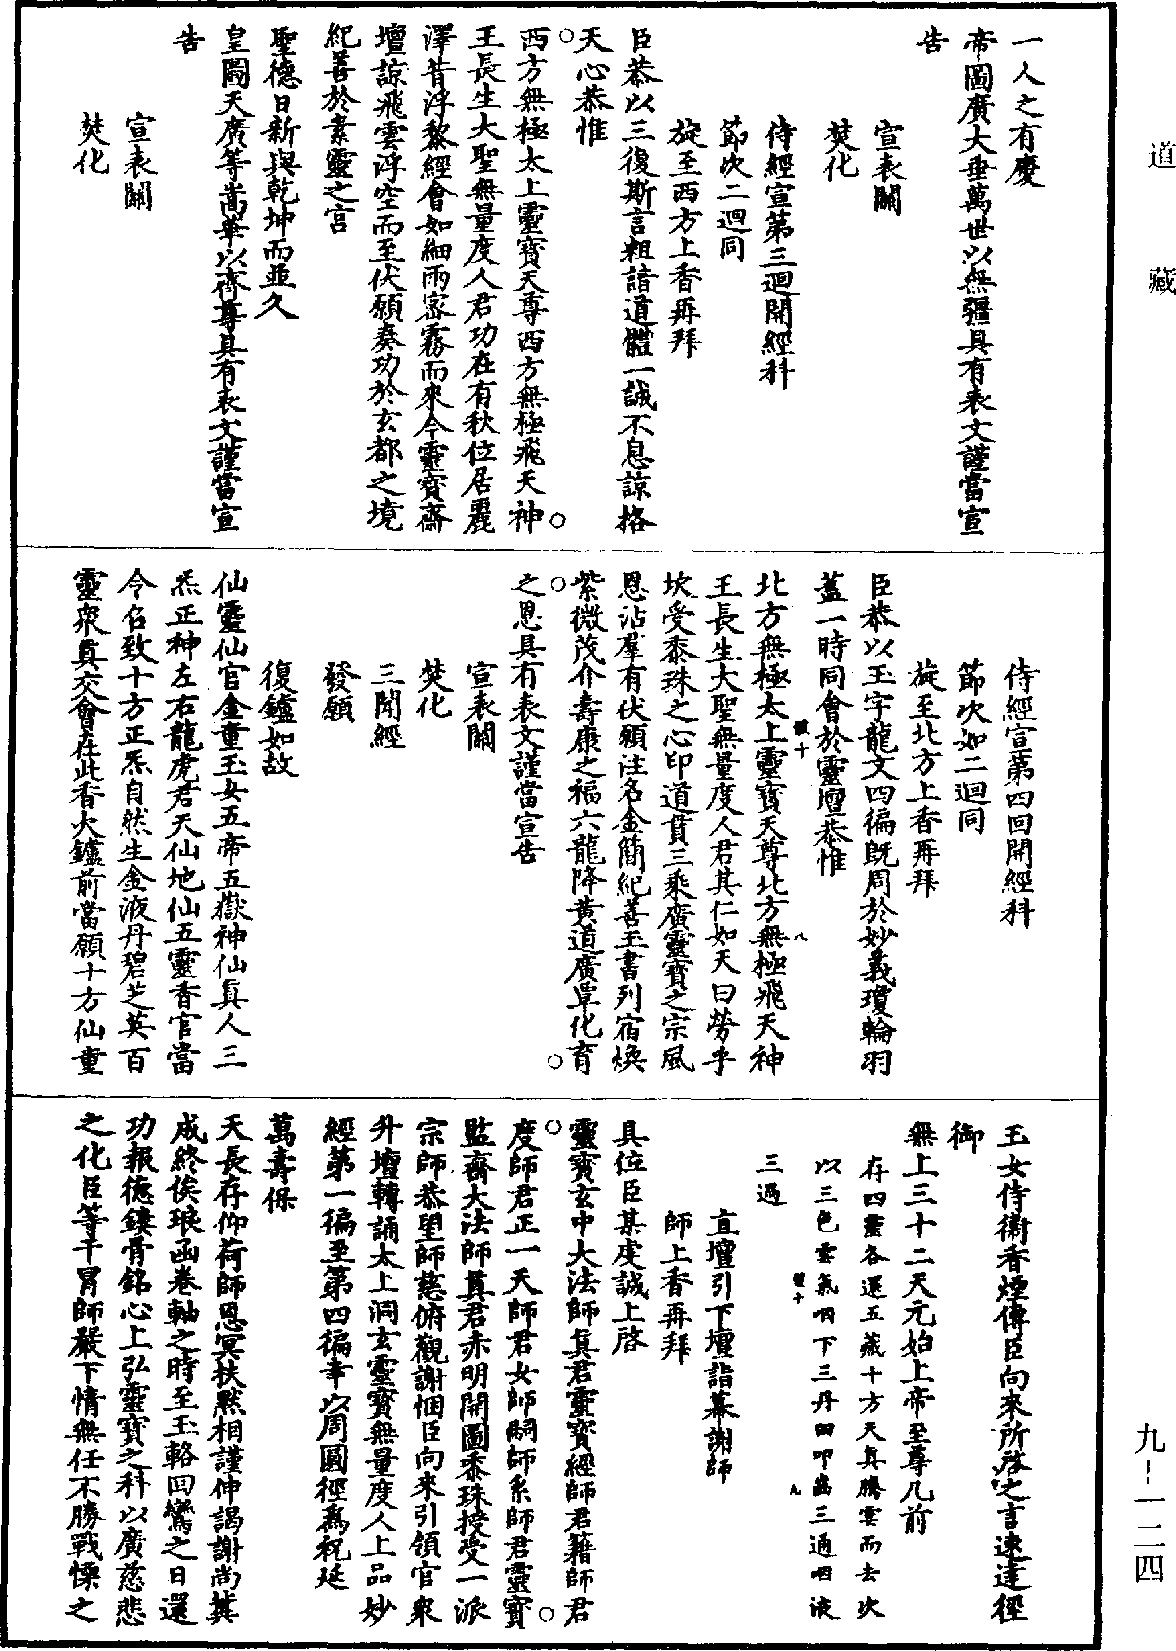 道藏
一人之有慶
帝圖廣大垂萬世以無疆具有表文謹當宣
告
宣表關
焚化
侍經宣第三迴開經科
節次二迴同
旋至西方上香再拜
臣恭以三復斯言粗諳道體一誠不息諒格
天心恭惟
○西方無極太上靈寶天尊西方無極飛天神○
王長生大聖無量度人君功在有秋位居麗
澤昔浮黎經會如細雨密霧而來今靈寶齋
壇諒飛雲浮空而至伏願奏功於玄都之境
紀善於素靈之宮
聖德日新與乾坤而並久
皇圖天廣等嵩華以齊尊具有表文謹當宣
告
宣表關
焚化
侍經宣第四回開經科
節次如二迴同
旋至北方上香再拜
臣恭以玉宇龍文四徧既周於妙義瓊輪羽
蓋一時同會於靈壇恭惟
北方無極太上靈寶天尊北方無極飛天神
王長生大聖無量度人君其仁如天曰勞乎
坎受黍珠之心印道貫三乘廣靈寶之宗風
恩沾羣有伏願注名金簡紀善玉書列宿煥
紫微茂介壽康之福六龍降黄道廣覃化育
○之恩具有表文謹當宣告○
宣表關
焚化
三聞經
發願
復鑪如故
仙靈仙官金童玉女五帝五嶽神仙真人三
炁正神左右龍虎君天仙地仙五靈香官當
令召致十方正炁自然生金液丹碧芝英百
靈衆真交會在此香火鑪前當願十方仙童
玉女侍衛香煙傳臣向來所啓之言速達徑
御
無上三十二天元始上帝至尊几前
存四靈各還五藏十方天真騰雲而去次
以三色雲氣咽下三丹田叩齒三通咽液
三過
直壇引下壇詣幕謝師
師上香再拜
具位臣某虔誠上啓
靈寶玄中大法師真君靈寶經師君籍師君
○度師君正一天師君女師嗣師系師君靈寶○
監齋大法師真君赤明開圖黍珠授受一派
宗師恭望師慈俯觀謝悃臣向來引領官衆
升壇轉誦太上洞玄靈寶無量度人上品妙
經第一徧至第四徧幸以周圓徑爲祝延
萬壽保
天長存仰荷師恩冥扶黙相謹伸謁謝尚冀
成終俟琅函卷軸之時至玉輅回鸞之日還
功報德鏤骨銘心上弘靈寶之科以廣慈悲
之化臣等干冒師嚴下情無任不勝戰慄之
九-一二四